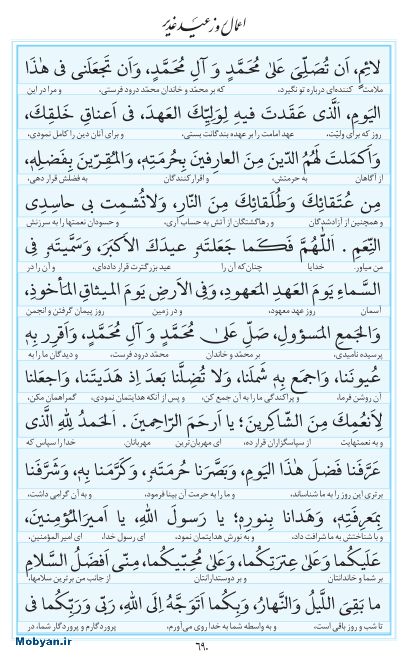 اعمال روز عید غدیر
لائِمٍ، اَن تُصَلِّىَ عَلىٰ مُحَمَّدٍ وَ آلِ مُحَمَّدٍ، وَاَن تَجعَلَنى فى هٰذَا
ملامت کننده‌ای درباره تو نگیرد، که بر محمّد و خاندان محمّد درود فرستی، و مرا در این
اليَومِ، اَلَّذى عَقَدتَ فيهِ لِوَلِيِّكَ العَهدَ، فى اَعناقِ خَلقِكَ،
روز که برای ولیّت، عهد امامت را بر عهده بندگانت بستی، و برای آنان دین را کامل نمودی،
وَاَكمَلتَ لَهُمُ الدّينَ مِنَ العارِفينَ بِحُرمَتِهِ، وَالمُقِرّينَ بِفَضلِهِ،
از آگاهان به حرمتش، و اقرار کنندگان به فضلش قرار دهی،
مِن عُتَقائِكَ وَطُلَقائِكَ مِنَ النّارِ، وَلاتُشمِت بى حاسِدِى
و همچنین از آزادشدگان و رهاگشتگان از آتش به حساب آری، و حسودان نعمتها را به سرزنش
النِّعَمِ . اَللّٰهُمَّ فَكَما جَعَلتَهُ عيدَكَ الاَكبَرَ، وَسَمَّيتَهُ فِى
من میاور. خدایا چنان‌که آن را عید بزرگترت قرار داده‌ای، و آن را در
السَّماءِ يَومَ العَهدِ المَعهودِ، وَفِى الاَرضِ يَومَ الميثاقِ المَأخوذِ،
آسمان روز عهد معهود، و در زمین روز پیمان گرفتن و انجمن
وَالجَمعِ المَسؤولِ، صَلِّ عَلىٰ مُحَمَّدٍ وَ آلِ مُحَمَّدٍ، وَاَقرِر بِهِ
پرسیده نامیدی، بر محمّد و خاندان محمّد درود فرست، و دیدگان ما را به
عُيونَنا، وَاجمَع بِهِ شَملَنا، وَلا تُضِلَّنا بَعدَ اِذ هَدَيتَنا، وَاجعَلنا
آن روشن فرما، و پراکندگی ما را به آن جمع کن، و پس از آنکه هدایتمان نمودی، گمراهمان مکن،
لِاَنعُمِكَ مِنَ الشّاكِرينَ؛ يا اَرحَمَ الرّاحِمينَ . اَلحَمدُ لِلّٰهِ الَّذى
و به نعمتهایت از سپاسگزاران قرار ده، ای مهربان‌ترین مهربانان. خدا را سپاس که
عَرَّفَنا فَضلَ هٰذَا اليَومِ، وَبَصَّرَنا حُرمَتَهُ، وَكَرَّمَنا بِهِ، وَشَرَّفَنا
برتری این روز را به ما شناساند، و ما را به حرمت آن بینا فرمود، و به آن گرامی داشت،
بِمَعرِفَتِهِ، وَهَدانا بِنورِهِ؛ يا رَسولَ اللهِ، يا اَميرَالمُؤمِنينَ،
و با شناختش به ما شرافت داد، و به نورش هدایتمان نمود، ای رسول خدا، ای امیر المؤمنین،
عَلَيكُما وَعَلىٰ عِترَتِكُما، وَعَلىٰ مُحِبّيكُما، مِنّى اَفضَلُ السَّلامِ
بر شما و خاندانتان و بر دوستدارانتان از جانب من برترین سلامها،
ما بَقِىَ اللَّيلُ وَالنَّهارُ، وَبِكُما اَتَوَجَّهُ اِلَى اللهِ، رَبّى وَرَبِّكُما فى
تا شب و روز باقی است، و به واسطه شما به خدا روی می‌آورم، پروردگارم و پروردگار شما، در
۶۹۰
Mobyan.ir